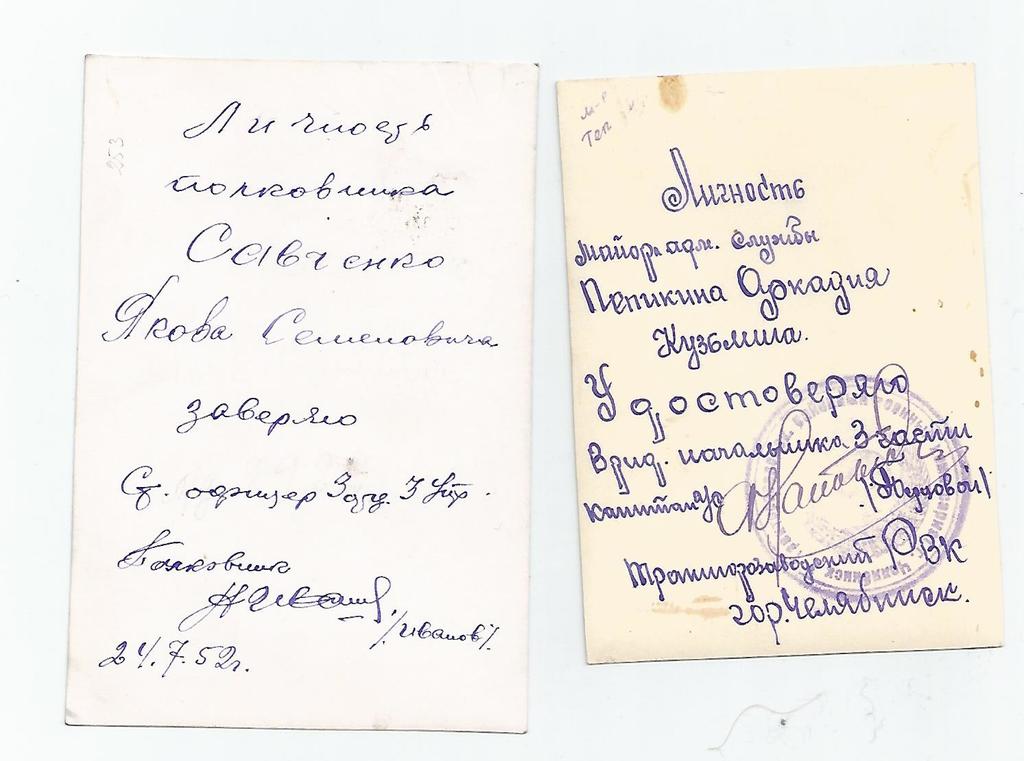 253
Личность
полковника
Савченко
Якова Семеновича
заверяю
Ст. офицер 3 отд. 3 Упр.
Полковник
/Иванов/.
24.7.52г.
м-р
Теп
Личность
майора адм. службы
Пепикина Аркадия
Кузьмича.
Удостоверяю
Врид. начальника 3 части
капитан а/с
Тракторозаводский РВК
гор. Челябинск.